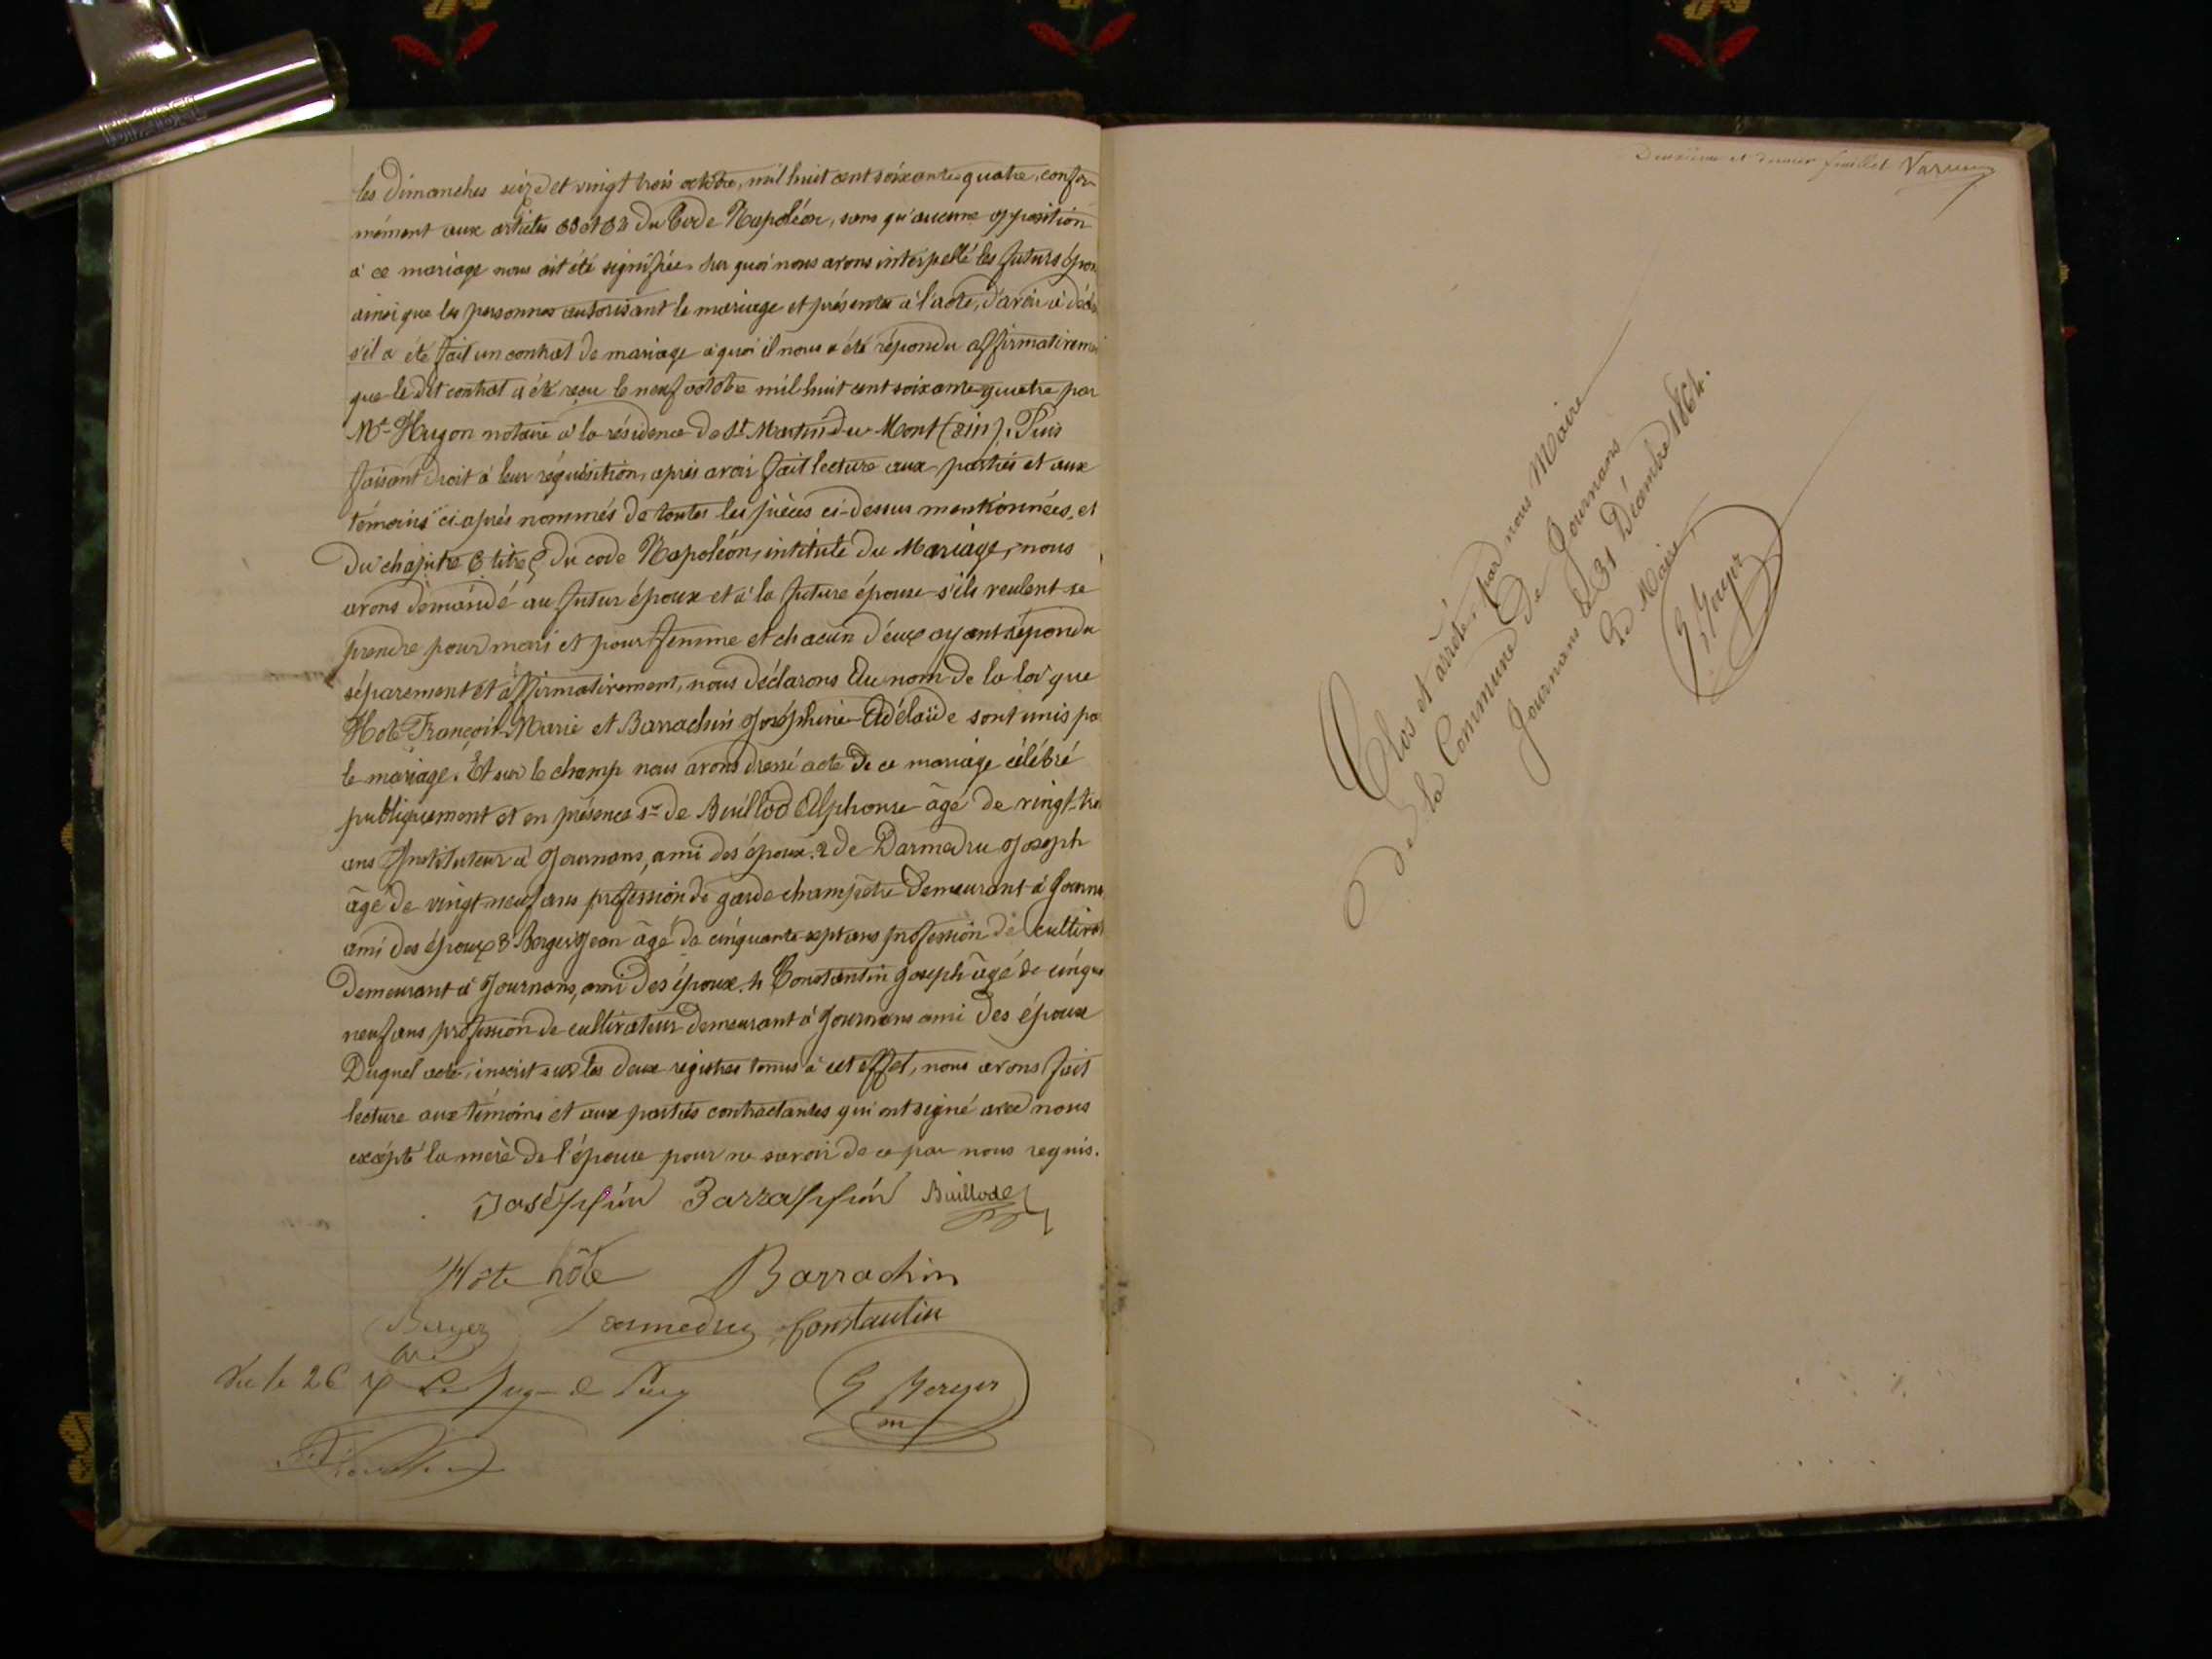 les dimanches seize et vingt trois octobre, mil huit cent soixante quatre, confor-
mément aux articles 63 et 64 du Code Napoléon, sans qu'aucune opposition
à ce mariage nous ait été signifiée. Sur quoi nous avons interpellé les futurs épou
ainsi que les personnes autorisant le mariage et présentes à l'acte, d'avoir à décla
s'il a été fait un contrat de mariage à quoi il nous a été répondu affirmativeme
que le dit contrat a été reçu le neuf octobre mil huit cent soixante quatre par
Mt Hugon notaire à la résidence de St Martin du Mont (ain). Puis
faisant droit à leur réquisition, après avoir fait lecture aux parties et aux
témoins ci-après nommés de toutes les pièces ci-dessus mentionnées, et
du chapitre 6 titre 5 du code Napoléon, intitulé du Mariage, nous
avons demandé au futur époux et à la future épouse s'ils veulent se
prendre pour mari et pour femme et chacun d'eux ayant répondu
séparement et affirmativement, nous déclarons Au nom de la loi que
Hote François Marie et Barrachin Joséphine Adélaïde sont unis pa
le mariage. Et sur le champ nous avons dressé acte de ce mariage célébré
publiquement et en présence 1º de Buillod Alphonse âgé de vingt-tro
ans Instituteur à Journans, ami des époux. 2 de Darmedru Joseph
âgé de vingt neuf ans profession de garde champêtre demeurant à Journa
ami des époux 3º Berger Jean âgé de cinquante sept ans profession de cultivat
demeurant à Journans, ami des époux. 4 Constantin Joseph âgé de cinqua
neuf ans profession de cultivateur demeurant à Journans ami des époux
Duquel acte, inscrit sur les deux registres tenus à cet effet, nous avons fait
lecture aux témoins et aux parties contractantes qui ont signé avec nous
excépté la mère de l'épouse pour ne savoir de ce par nous requis.
Joséphin Barrachin Buillod
Hôte hôte Barrachin
Berger Darmedru Constantin
Vu le 26 Le Juge de Paix
G Berger
m
Deuxième et dernier feuillet Varenn
Clos et arrêté par nous Maire
de la Commune de Journans
Journans le 31 Décembre 1864.
Le Maire,
G Berger